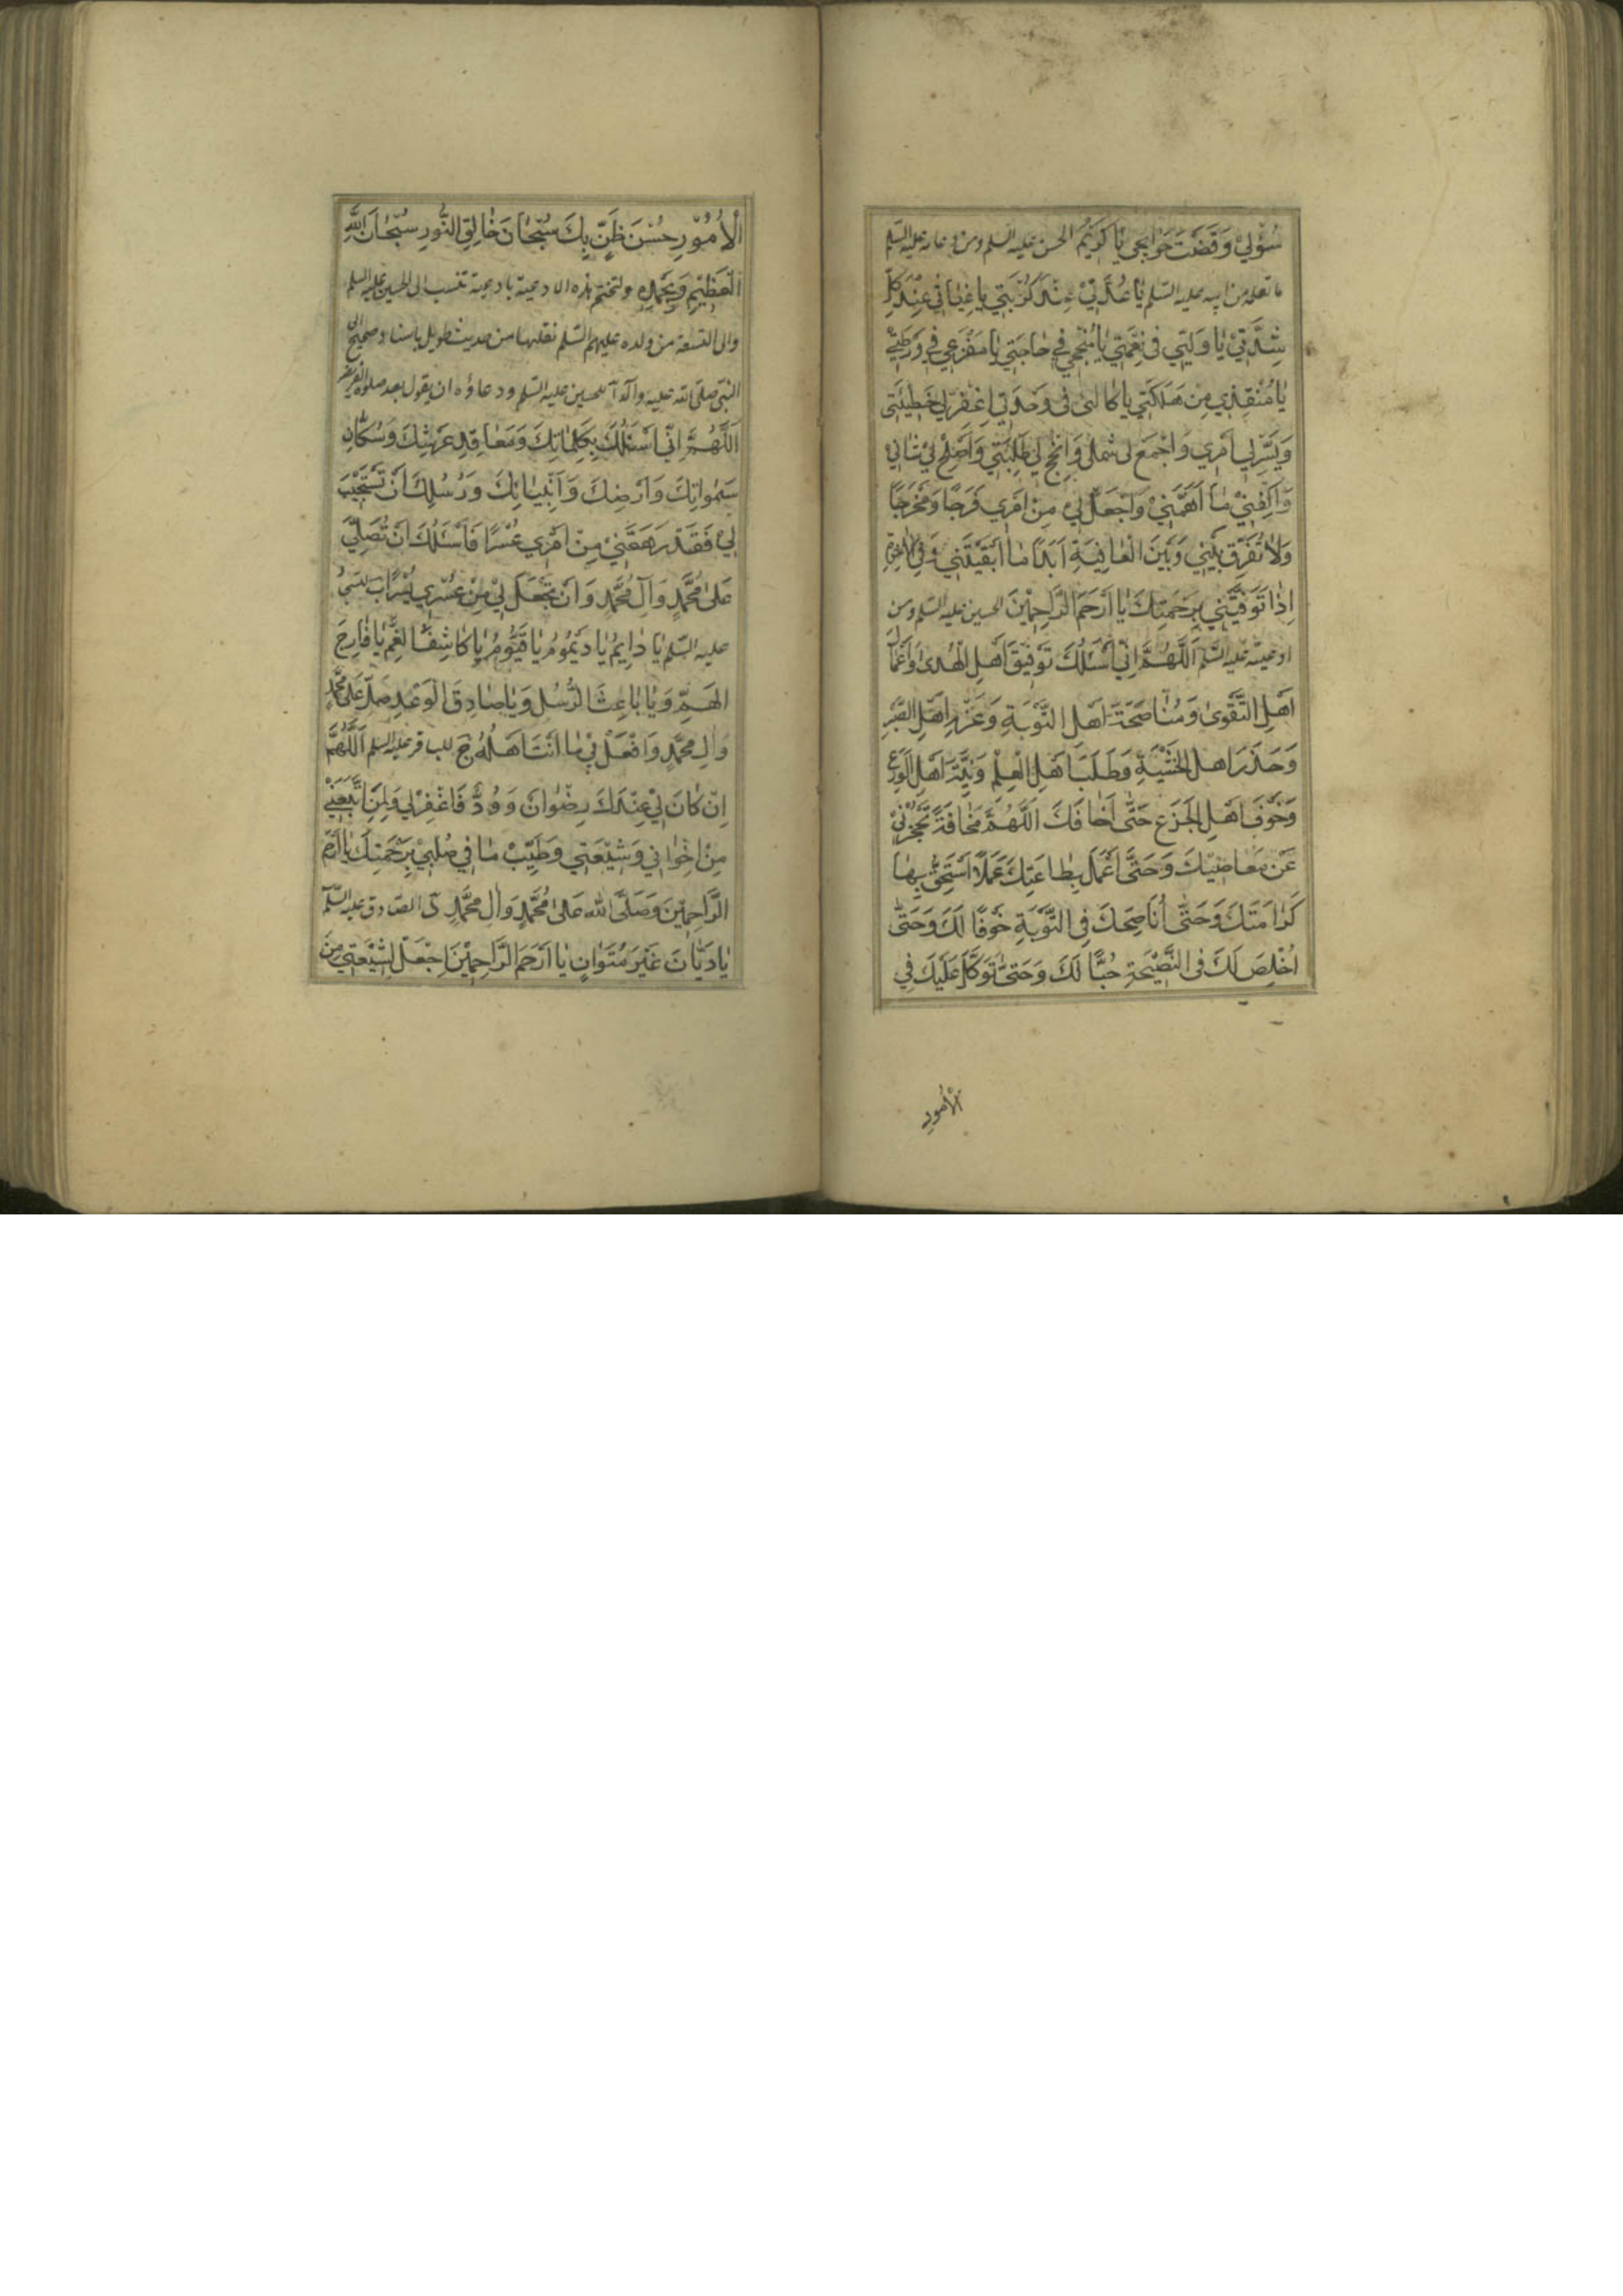 سُؤْلِي وَقَضَتَ حَوَائِجِي يَا كَرِيمُ الحسن عليه السلم ومن دعائه عليه السلم
ما نقله من ابيه عليه السلم يَا عُدَّتِي عِنْدَ كُرْبَتِي يَا غِيَاثِي عِنْدَ كُلِّ
شِدَّتِي يَا وَلِيِّي فِي نِعْمَتِي يَا مُنْجِحِي فِي حَاجَتِي يَا مَفْزَعِي فِي وَرْطَتِي
يَا مُنْقِذِي مِنْ هَلَكَتِي يَا كَالِئِي فِي وَحْدَتِي اِغْفِرْ لِي خَطِيئَتِي
وَيَسِّرْ لِي اَمْرِي وَاجْمَعْ لِي شَمْلِي وَاَنْجِحْ لِي طَلِبَتِي وَاَصْلِحْ لِي شَانِي
وَاكْفِنِي مَا اَهَمَّنِي وَاجْعَلْ لِي مِنْ اَمْرِي فَرَجًا وَمَخْرَجًا
وَلَا تُفَرِّقْ بَيْنِي وَبَيْنَ الْعَافِيَةِ اَبَدًا مَا اَبْقَيْتَنِي وَفِي الْاٰخِرَةِ
اِذَا تَوَفَّيْتَنِي بِرَحْمَتِكَ يَا اَرْحَمَ الرَّاحِمِينَ الحسين عليه السلم ومن
ادعيته عليه السلم اَللّٰهُمَّ اِنِّي اَسْئَلُكَ تَوْفِيقَ اَهْلِ الْهُدٰى وَاَعْمَالَ
اَهْلِ التَّقْوٰى وَمُنَاصَحَةَ اَهْلِ التَّوْبَةِ وَعَزْمَ اَهْلِ الصَّبْرِ
وَحَذَرَ اَهْلِ الْخَشْيَةِ وَطَلَبَ اَهْلِ الْعِلْمِ وَزِينَةَ اَهْلِ الْوَرَعِ
وَخَوْفَ اَهْلِ الْجَزَعِ حَتّٰى اَخَافَكَ اَللّٰهُمَّ مَخَافَةً تَحْجُزُنِي
عَنْ مَعَاصِيكَ وَحَتّٰى اَعْمَلَ بِطَاعَتِكَ عَمَلًا اَسْتَحِقُّ بِهَا
كَرَامَتَكَ وَحَتّٰى اُنَاصِحَكَ فِي التَّوْبَةِ خَوْفًا لَكَ وَحَتّٰى
اُخْلِصَ لَكَ فِي النَّصِيحَةِ حُبًّا لَكَ وَحَتّٰى تَوَكَّلَ عَلَيْكَ فِي
الْاُمُورِ
الْاُمُورِ حُسْنَ ظَنٍّ بِكَ سُبْحَانَ خَالِقِ النُّورِ سُبْحَانَ اللّٰهِ
الْعَظِيمِ وَبِحَمْدِهِ ولنختم هذه الادعية بادعية تنسب الى الحسين عليه السلم
والى التسعة من ولده عليهم السلم نقلتها من حديث طويل باسناد صحيح الى
النبي صلى الله عليه واله آ للحسين عليه السلم ودعاؤه ان يقول بعد صلوة الفريضة
اَللّٰهُمَّ اِنِّي اَسْئَلُكَ بِكَلِمَاتِكَ وَمَعَاقِدِ عَرْشِكَ وَسُكَّانِ
سَمٰوَاتِكَ وَاَرْضِكَ وَاَنْبِيَائِكَ وَرُسُلِكَ اَنْ تَسْتَجِيبَ
لِي فَقَدْ رَهَقَنِي مِنْ اَمْرِي عُسْرًا فَاَسْئَلُكَ اَنْ تُصَلِّيَ
عَلٰى مُحَمَّدٍ وَآلِ مُحَمَّدٍ وَاَنْ تَجْعَلَ لِي مِنْ عُسْرِي يُسْرًا ب
عليه السلم يَا دَايِمُ يَا دَيْمُومُ يَا قَيُّومُ يَا كَاشِفَ الْغَمِّ يَا فَارِجَ
الْهَمِّ وَيَا بَاعِثَ الرُّسُلِ وَيَا صَادِقَ الْوَعْدِ صَلِّ عَلٰى مُحَمَّدٍ
وَآلِ مُحَمَّدٍ وَافْعَلْ بِي مَا اَنْتَ اَهْلُهُ ج للباقر عليه السلم اَللّٰهُمَّ
اِنْ كَانَ لِي عِنْدَكَ رِضْوَانٌ وَوُدٌّ فَاغْفِرْ لِي وَلِمَنِ اتَّبَعَنِي
مِنْ اِخْوَانِي وَشِيعَتِي وَطَيِّبْ مَا فِي صُلْبِي بِرَحْمَتِكَ يَا اَرْحَمَ
الرَّاحِمِينَ وَصَلَّى اللّٰهُ عَلٰى مُحَمَّدٍ وَآلِ مُحَمَّدٍ د الصادق عليه السلم
يَا دَيَّانُ غَيْرَ مُتَوَانٍ يَا اَرْحَمَ الرَّاحِمِينَ اِجْعَلْ لِشِيعَتِي مِنَ